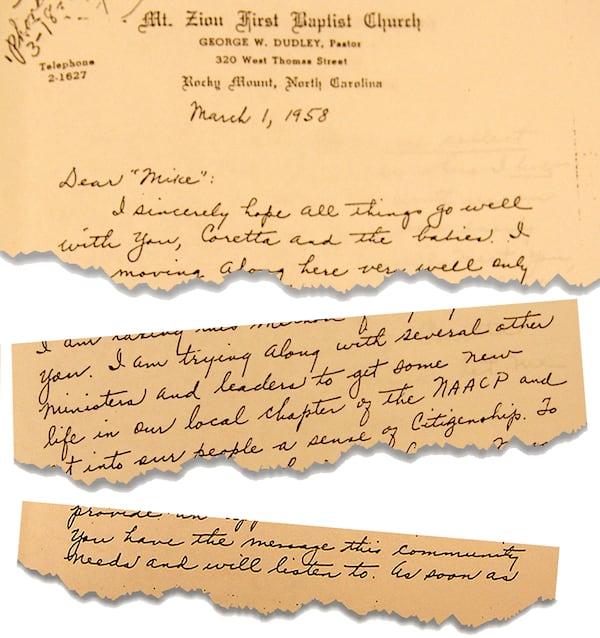 Phone
3-18-
Mt. Zion First Baptist Church
GEORGE W. DUDLEY, Pastor
320 West Thomas Street
Telephone
2-1627
Rocky Mount, North Carolina
March 1, 1958
Dear "Mike":
I sincerely hope all things go well
with you, Coretta and the babies. I
moving along here very well only
I am taking this method of
you. I am trying along with several other
ministers and leaders to get some new
life in our local chapter of the NAACP and
into our people a sense of Citizenship. To
provide an
You have the message this community
needs and will listen to. As soon as